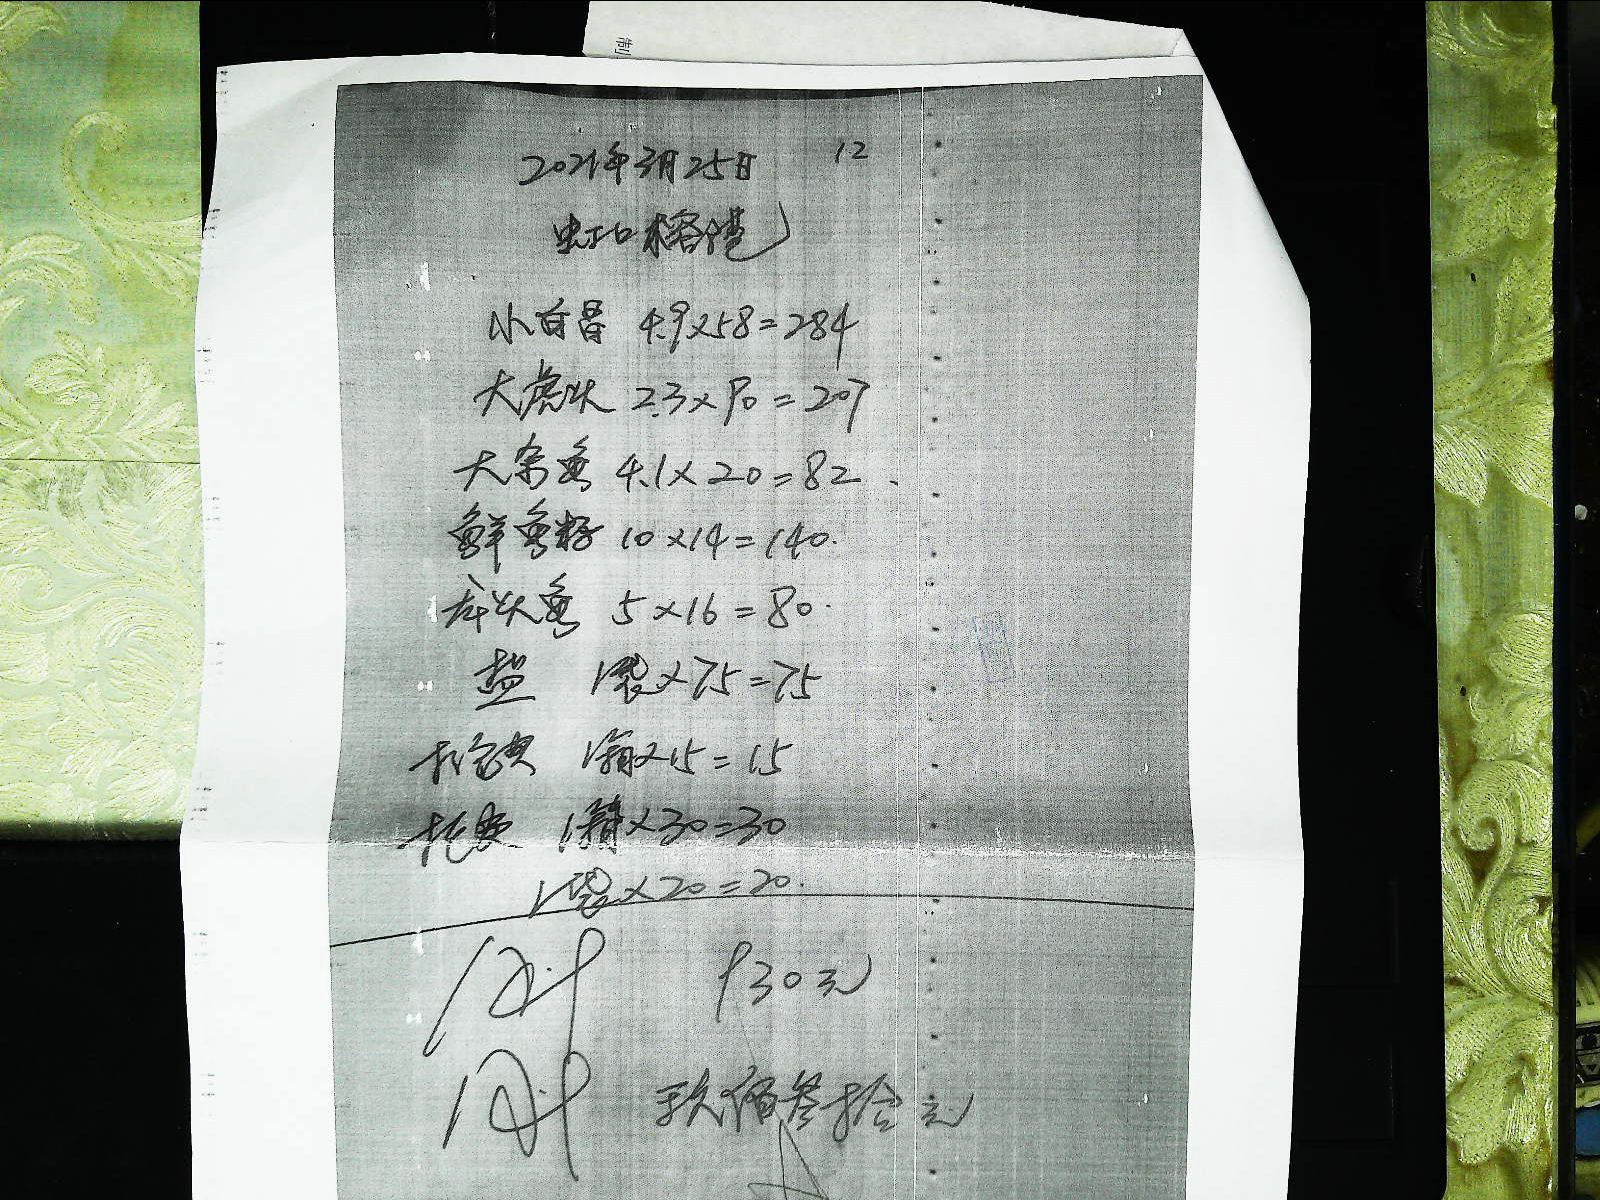 制
2021年3月25日 12
虹口榕港
小白昌 4.9×58=284
大虎头 2.3×90=207
大宗鱼 4.1×20=82
鲜鱼籽 10×14=140.
胖头鱼 5×16=80.
盐 1袋×75=75
1箱×15=15
托运 1箱×30=30
1袋×20=20.
930元
玖佰叁拾元